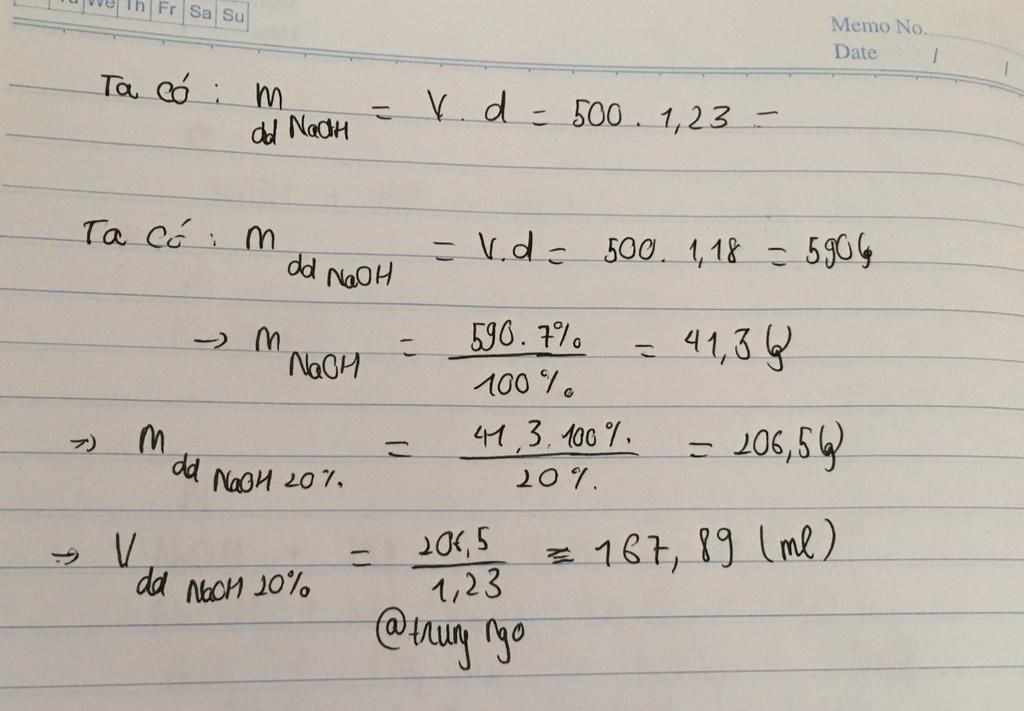 We Th Fr Sa Su
Memo No.
Date / /
Ta có : m dd NaOH = V . d = 500 . 1,23 =
Ta có : m dd NaOH = V.d = 500. 1,18 = 590g
→ m NaOH = 590. 7% / 100% = 41,3 g
=> m dd NaOH 20% = 41,3.100% / 20% = 206,5g
=> V dd NaOH 20% = 206,5 / 1,23 = 167,89 (ml)
@trung ngo